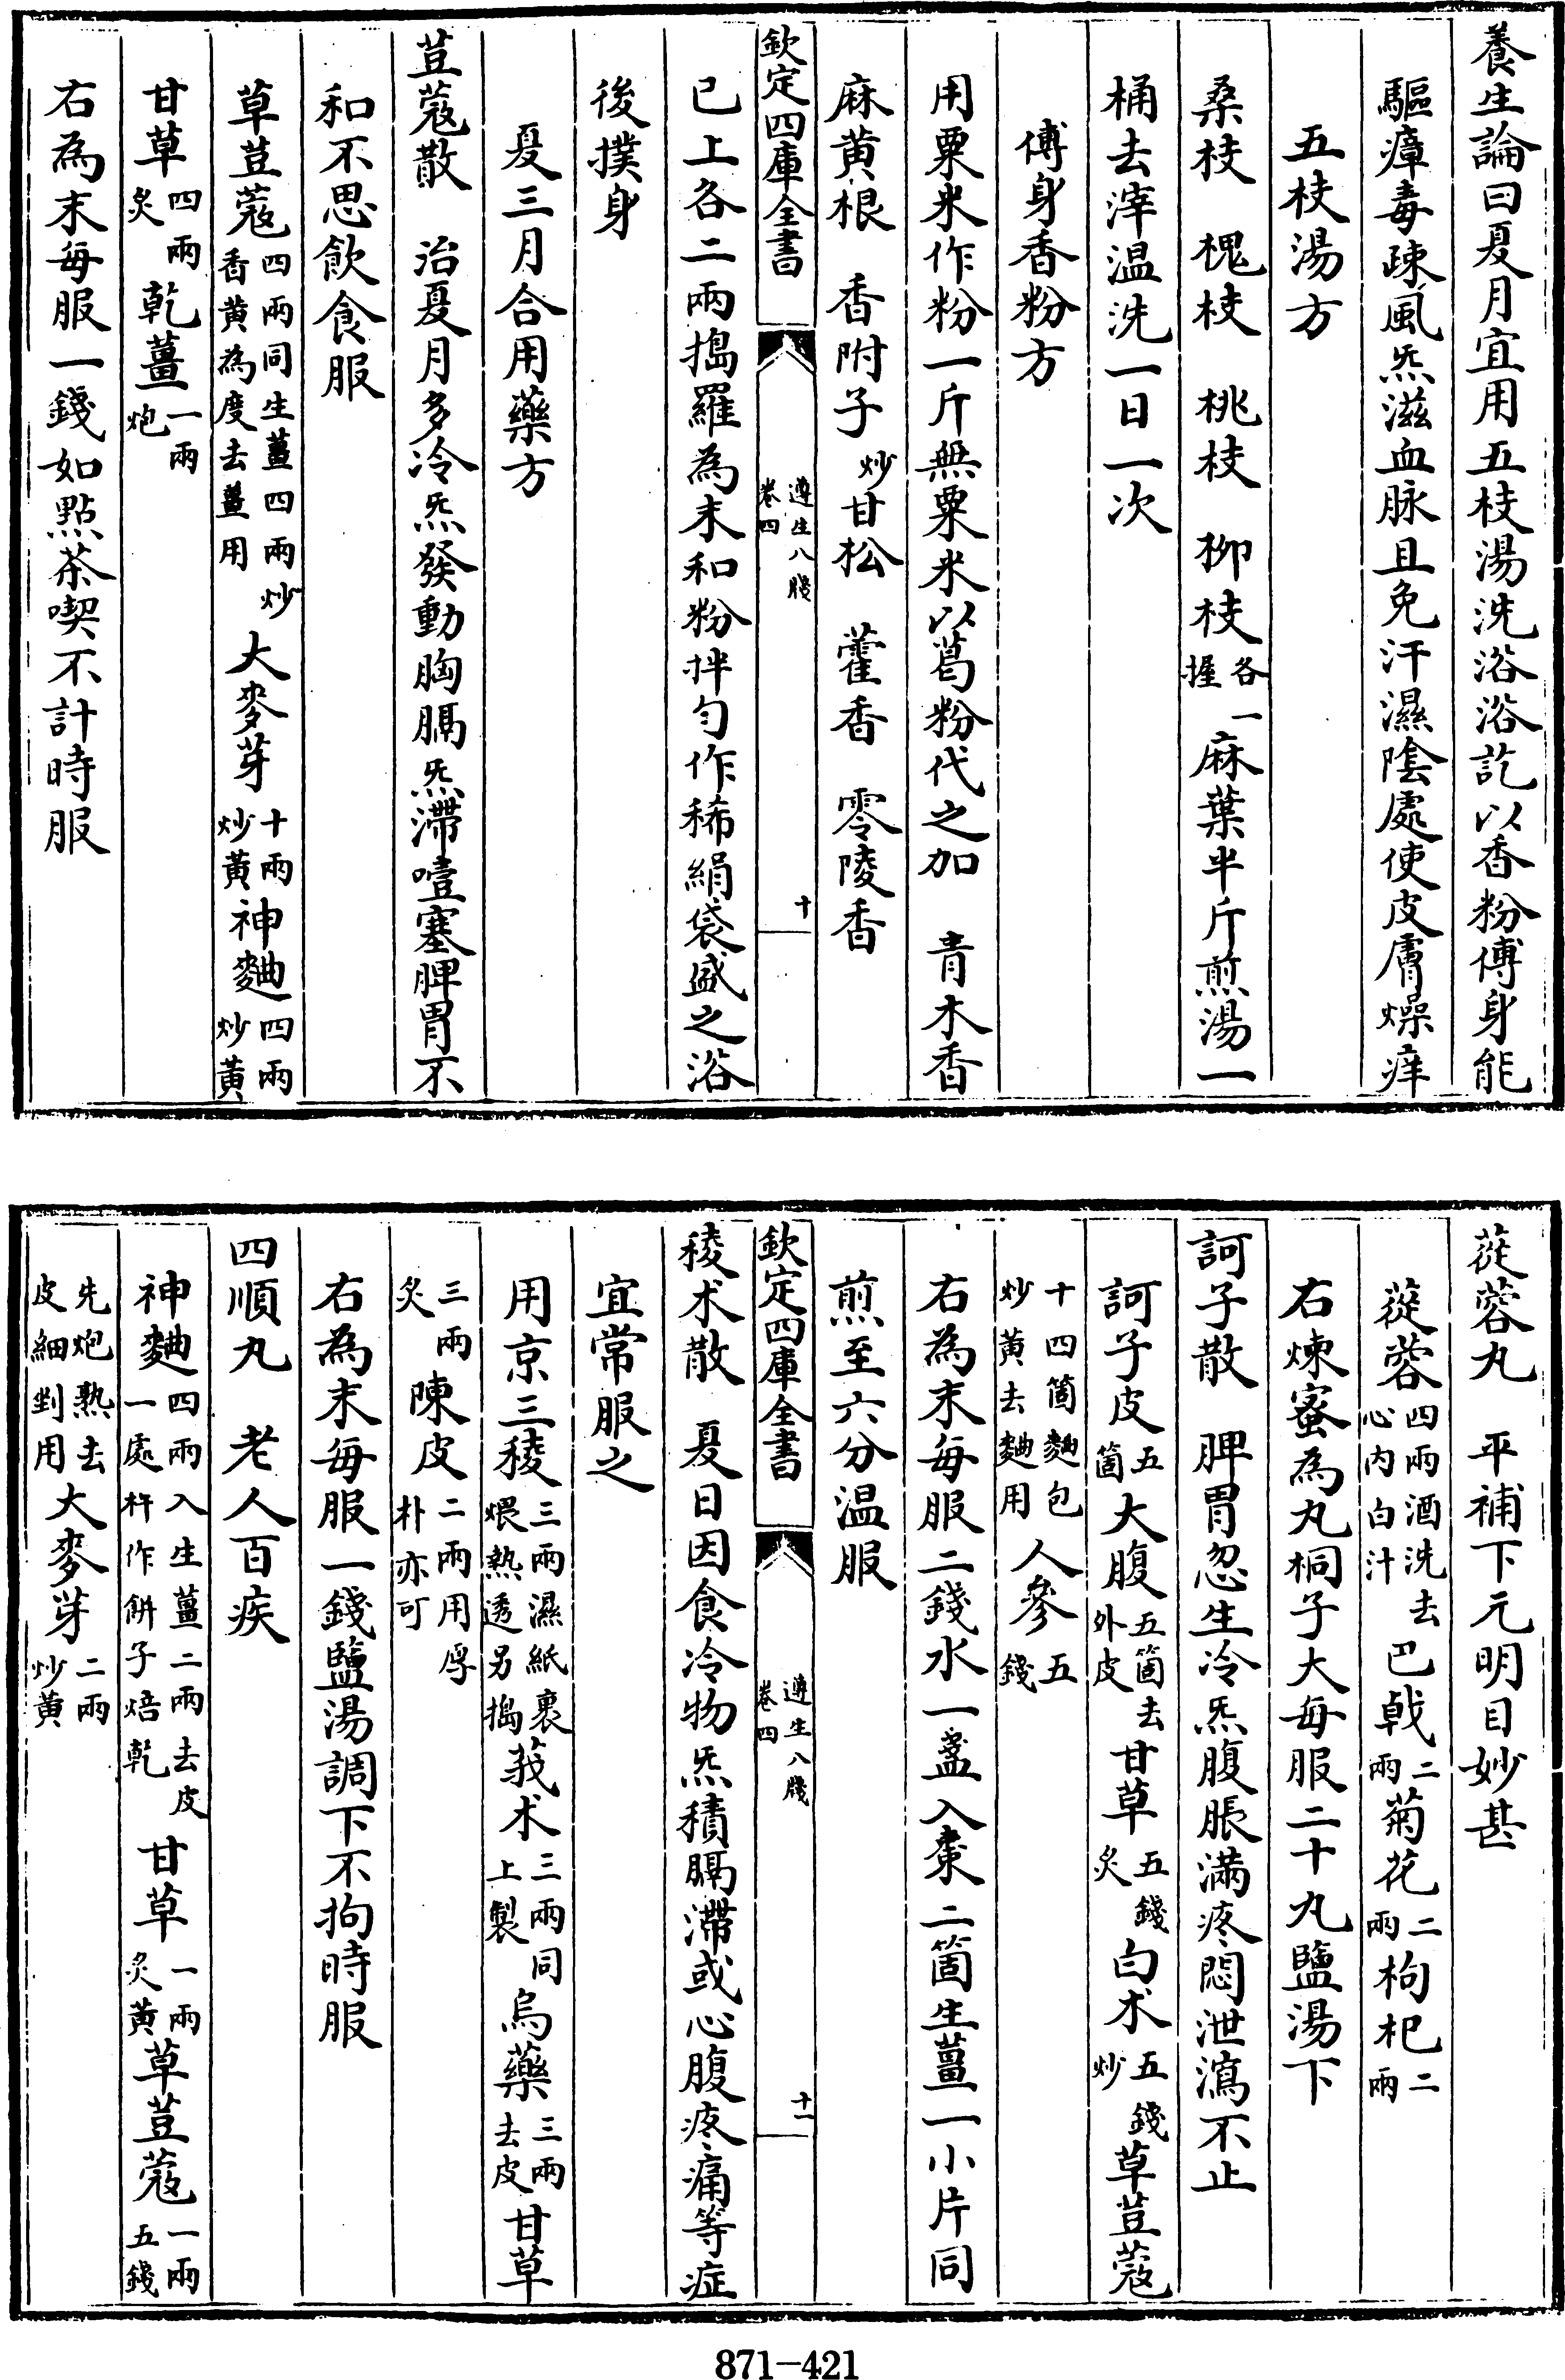 養生論曰夏月宜用五枝湯洗浴浴訖以香粉傅身能
驅瘴毒疎風炁滋血脉且免汗濕陰處使皮膚燥痒
五枝湯方
桑枝　槐枝　桃枝　柳枝各一握麻葉半斤煎湯一
桶去滓温洗一日一次
傅身香粉方
用粟米作粉一斤無粟米以葛粉代之加　青木香
麻黄根　香附子炒甘松　藿香　零陵香
欽定四庫全書　遵生八牋卷四　十
已上各二兩搗羅為末和粉拌勻作稀絹袋盛之浴
後撲身
夏三月合用藥方
荳蔻散　治夏月多冷炁發動胸膈炁滯噎塞脾胃不
和不思飲食服
草荳蔻四兩同生薑四兩炒香黄為度去薑用大麥芽十兩炒黄神麯四兩炒黄
甘草四兩炙乾薑一兩炮
右為末每服一錢如點茶喫不計時服
蓯蓉丸　平補下元明目妙甚
蓯蓉四兩酒洗去心内白汁巴戟二兩菊花二兩枸杞二兩
右煉蜜為丸桐子大每服二十九丸鹽湯下
訶子散　脾胃忽生冷炁腹脹滿疼悶泄瀉不止
訶子皮五箇大腹五箇去外皮甘草五錢炙白术五錢炒草荳蔻
十四箇麯包炒黄去麯用人參五錢
右為末每服二錢水一盞入棗二箇生薑一小片同
煎至六分温服
欽定四庫全書　遵生八牋卷四　十一
稜术散　夏日因食冷物炁積膈滯或心腹疼痛等症
宜常服之
用京三稜三兩濕紙裹煨熟透另搗莪术三兩同上製烏藥三兩去皮甘草
三兩炙陳皮二兩用厚朴亦可
右為末每服一錢鹽湯調下不拘時服
四順丸　老人百疾
神麯四兩入生薑二兩去皮一處杵作餅子焙乾甘草一兩炙黄草荳蔻一兩五錢
先炮熟去皮細剉用大麥芽二兩炒黄
871-421